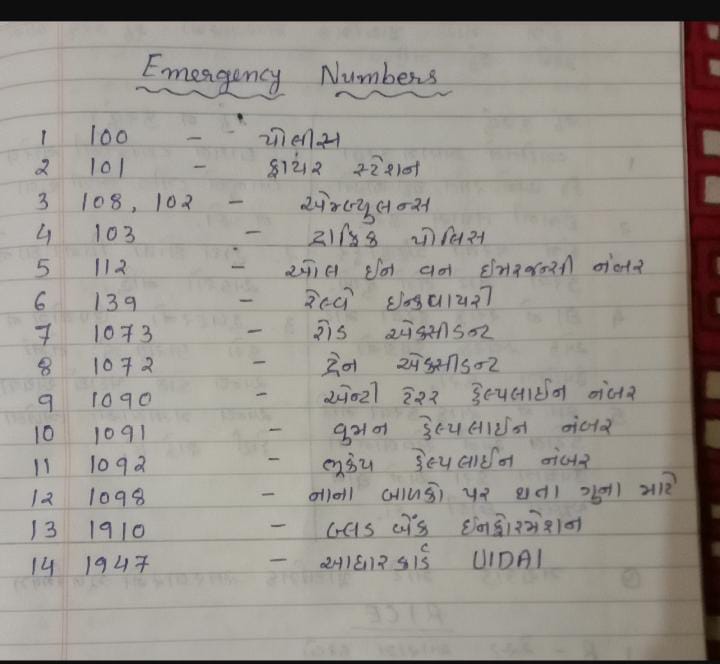 Emergency Numbers
1 100 - પોલીસ
2 101 - ફાયર સ્ટેશન
3 108, 102 - એમ્બ્યુલન્સ
4 103 - ટ્રાફિક પોલિસ
5 112 - ઓલ ઈન વન ઈમરજન્સી નંબર
6 139 - રેલ્વે ઈન્કવાયરી
7 1073 - રોડ એક્સીડન્ટ
8 1072 - ટ્રેન એક્સીડન્ટ
9 1090 - એન્ટી ટેરર હેલ્પલાઈન નંબર
10 1091 - વુમન હેલ્પલાઈન નંબર
11 1092 - ભૂકંપ હેલ્પલાઈન નંબર
12 1098 - નાના બાળકો પર થતા ગુના માટે
13 1910 - બ્લડ બેંક ઈનફોરમેશન
14 1947 - આધારકાર્ડ UIDAI